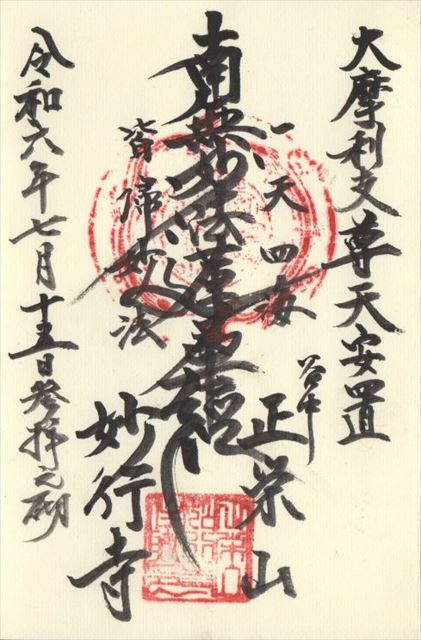 大摩利支尊天安置
谷中
正栄山
一天四海
南無妙法蓮華経
皆帰妙法
妙行寺
令和六年七月十五日参拝之砌